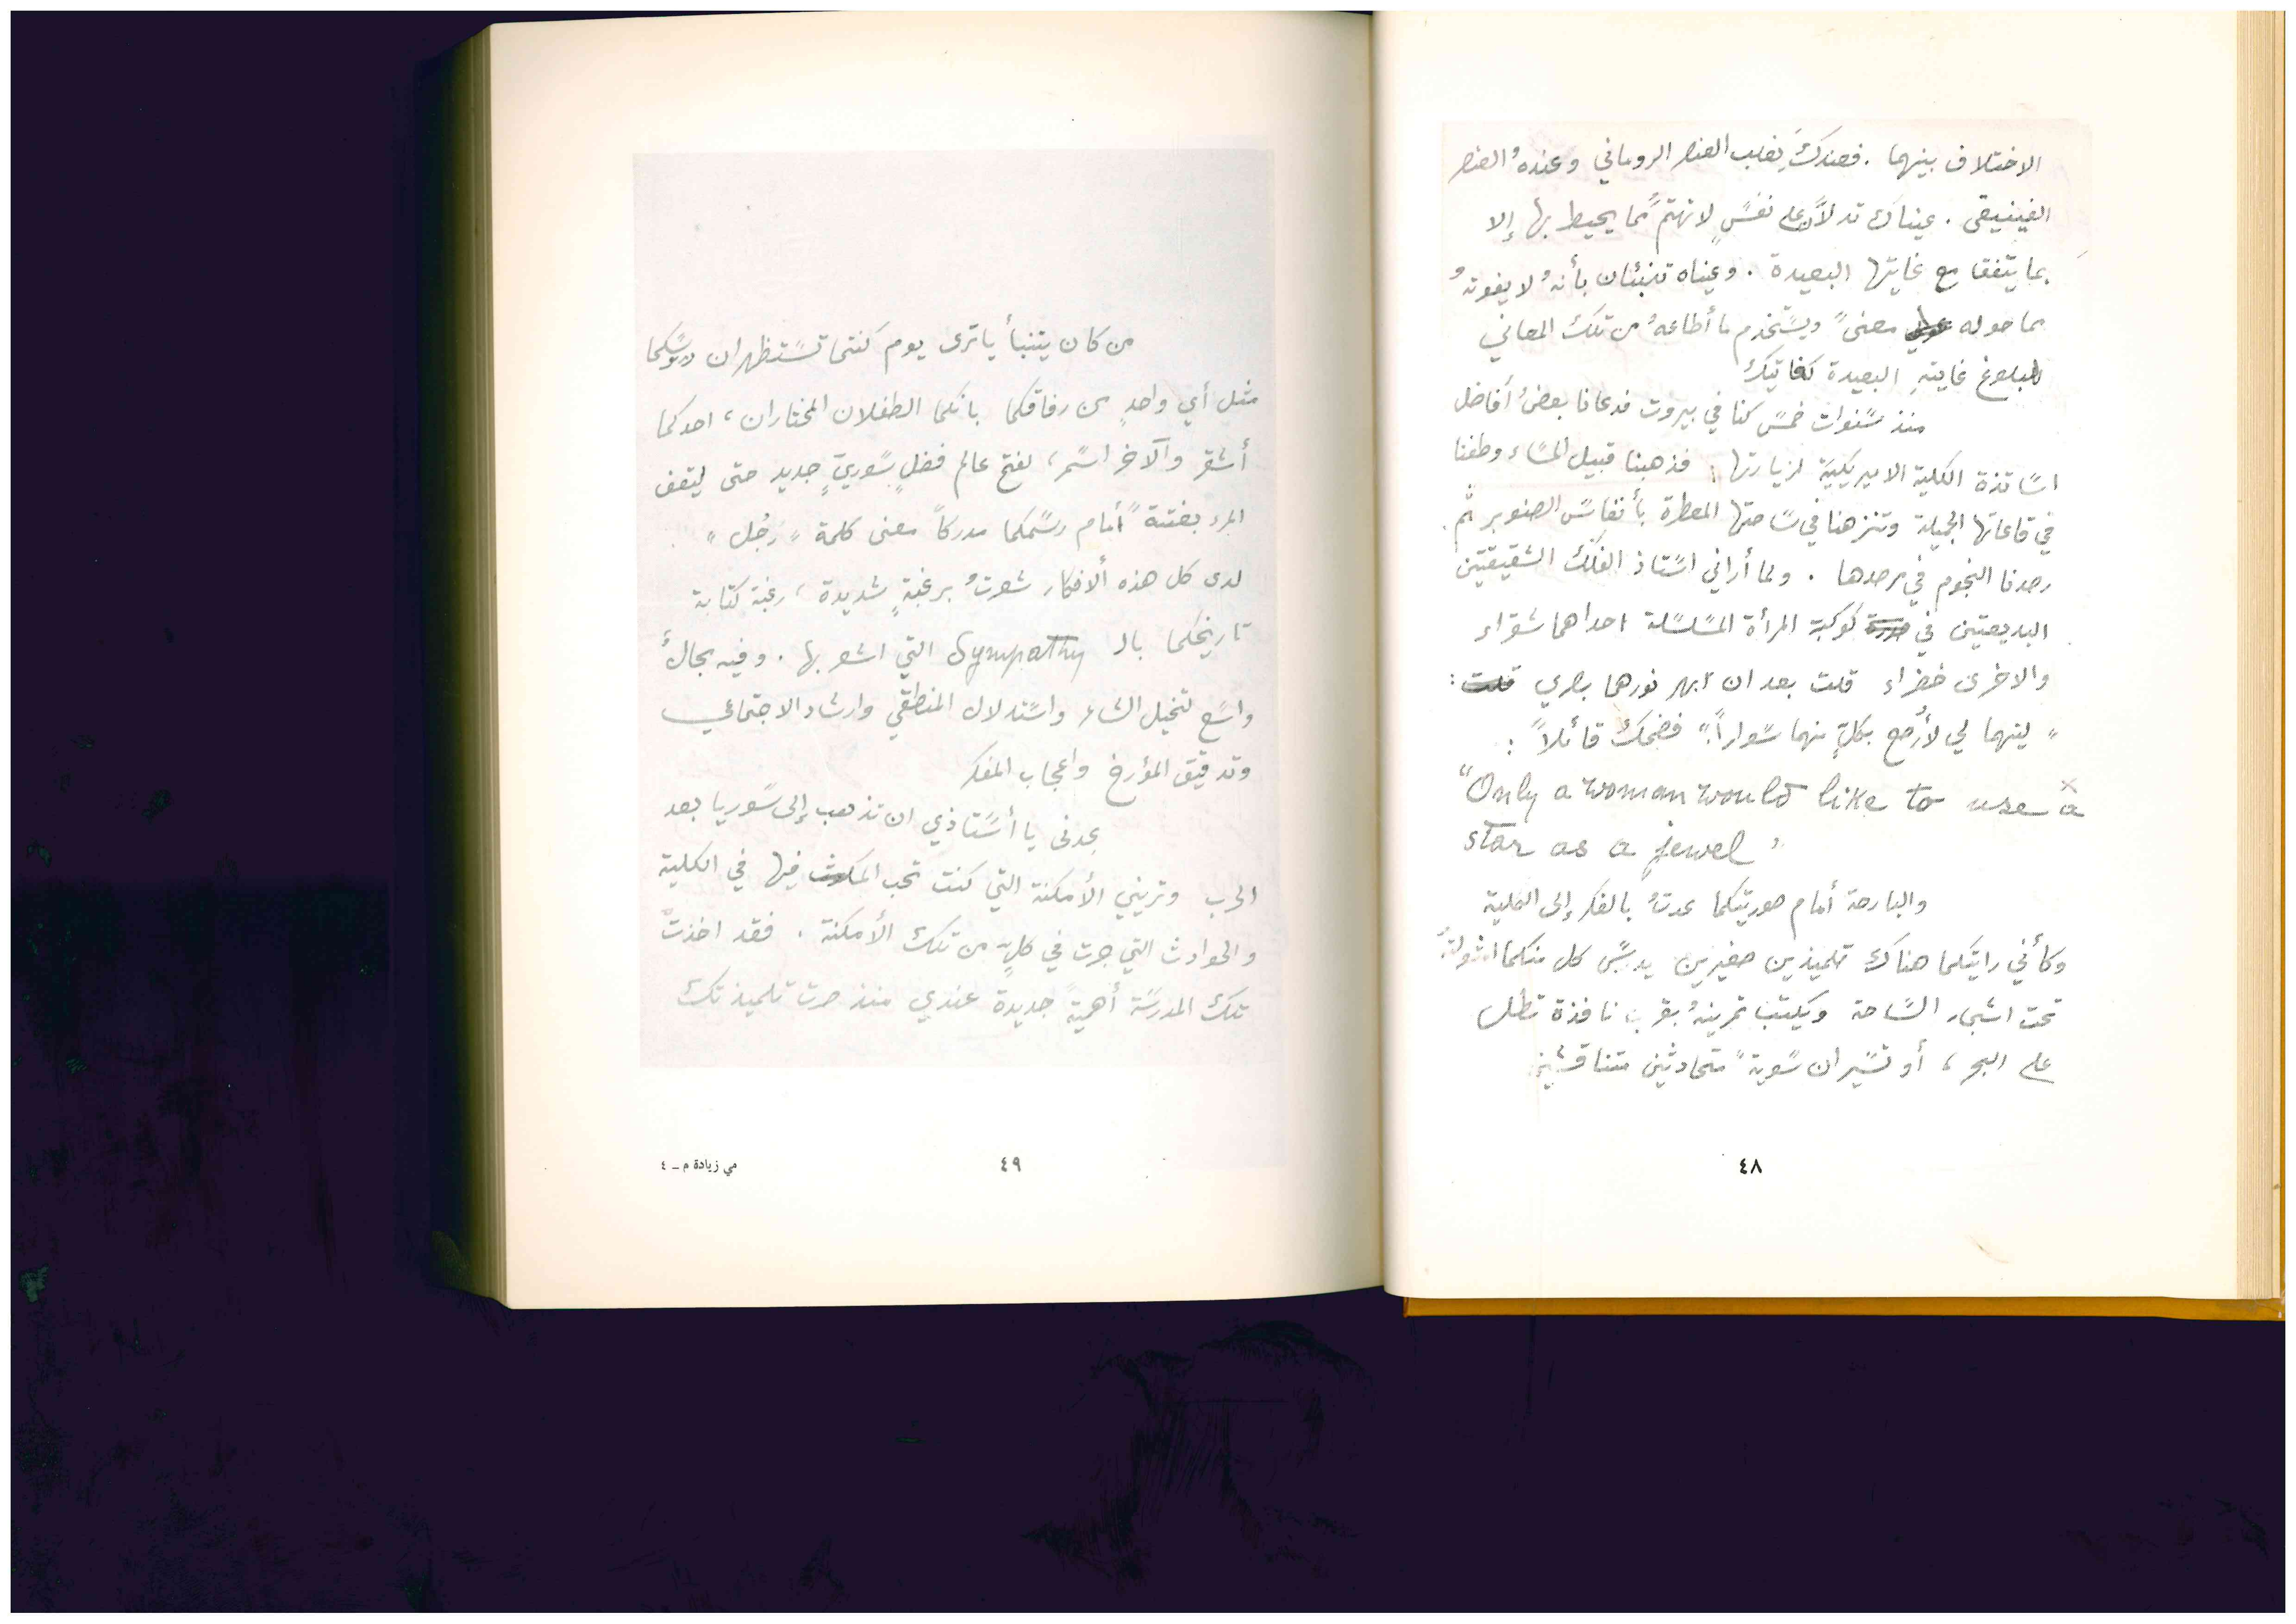 الاختلاف بينهما . فعندكَ يغلب العنصر الروماني وعندهُ العنصر
الفينيقي . عيناك تدلاّن على نفسٍ لا تهتمّ مما يحيط بها إلا
بما يتفقا مع غايتها البعيدة . وعيناه تنبئان بأنهُ لا يفوتهُ
مما حوله معنىً ويستخدم ما أطاعهُ من تلك المعاني
لبلوغ غايتهِ البعيدة
منذ سنوات خمس كنا في بيروت فدعانا بعضُ أفاضل
اساتذة الكلية الاميريكية لزيارتها ، فذهبنا قبيل المساء وطفنا
في قاعاتها الجميلة وتنزهنا في ساحتها المعطرة بأنفاس الصنوبر ثم
رصدنا النجوم في مرصدها . ولما أراني استاذ الفلك الشقيقتين
البديعتين في كوكبة المرأة المسلسلة احداهما شقراء
والاخرى خضراء قلت بعد ان ابهر نورهما بصري قلت :
" ليتهما لي لأرصّع بكلٍّ منهما سواراً " فضحك قائلاً :
"Only a woman would like to use a
star as a jewel"
والبارحة أمام صورتيكما عدتُ بالفكر إلى الكلية
وكأني رايتكما هناك تلميذين صغيرين يدرس كل منكما
تحت اشجار الساحة ويكتب تمرينهُ بقرب نافذة تطل
على البحر ، أو تسيران سويةً متحادثين متناقشين
٤٨
من كان يتنبأ يا ترى يوم كنتما تستظهران دروسكما
مثل أي واحدٍ من رفاقكما بانكما الطفلان المختاران ، احدكما
أشقر والآخر اسمر ، لفتح عالم فضلٍ سوريّ جديد حتى ليقف
المرء بغتةً أمام رسمكما مدركاً معنى كلمة " رَجُل " .
لدى كل هذه ألافكار شعرتُ برغبةٍ شديدة ، رغبة كتابة
تاريخكما بالـ Sympathy التي اشعر بها . وفيه مجالٌ
واسع لتخيل الشاعر واستدلال المنطقي وارشاد الاجتماعي
وتدقيق المؤرخ واعجاب المفكر
عدني يا أستاذي ان تذهب إلى سوريا بعد
الحرب وتريني الأمكنة التي كنت تحب المكوث فيها في الكلية
والحوادث التي جرت في كلٍّ من تلك الأمكنة . فقد اخذتْ
تلك المدرسة أهمية جديدة عندي منذ صرت تلميذتك
٤٩
مي زيادة م - ٤